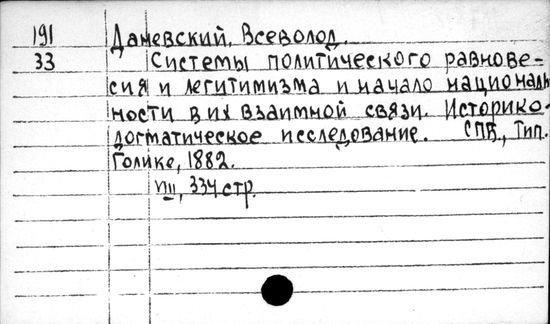 191 Даневский, Всеволод.
33 Системы политического равнове-
сия и легитимизма и начало националь
ности в их взаимной связи. Историко-
догматическое исследование. СПБ., Тип.
Голике, 1882.
VIII, 334 стр.